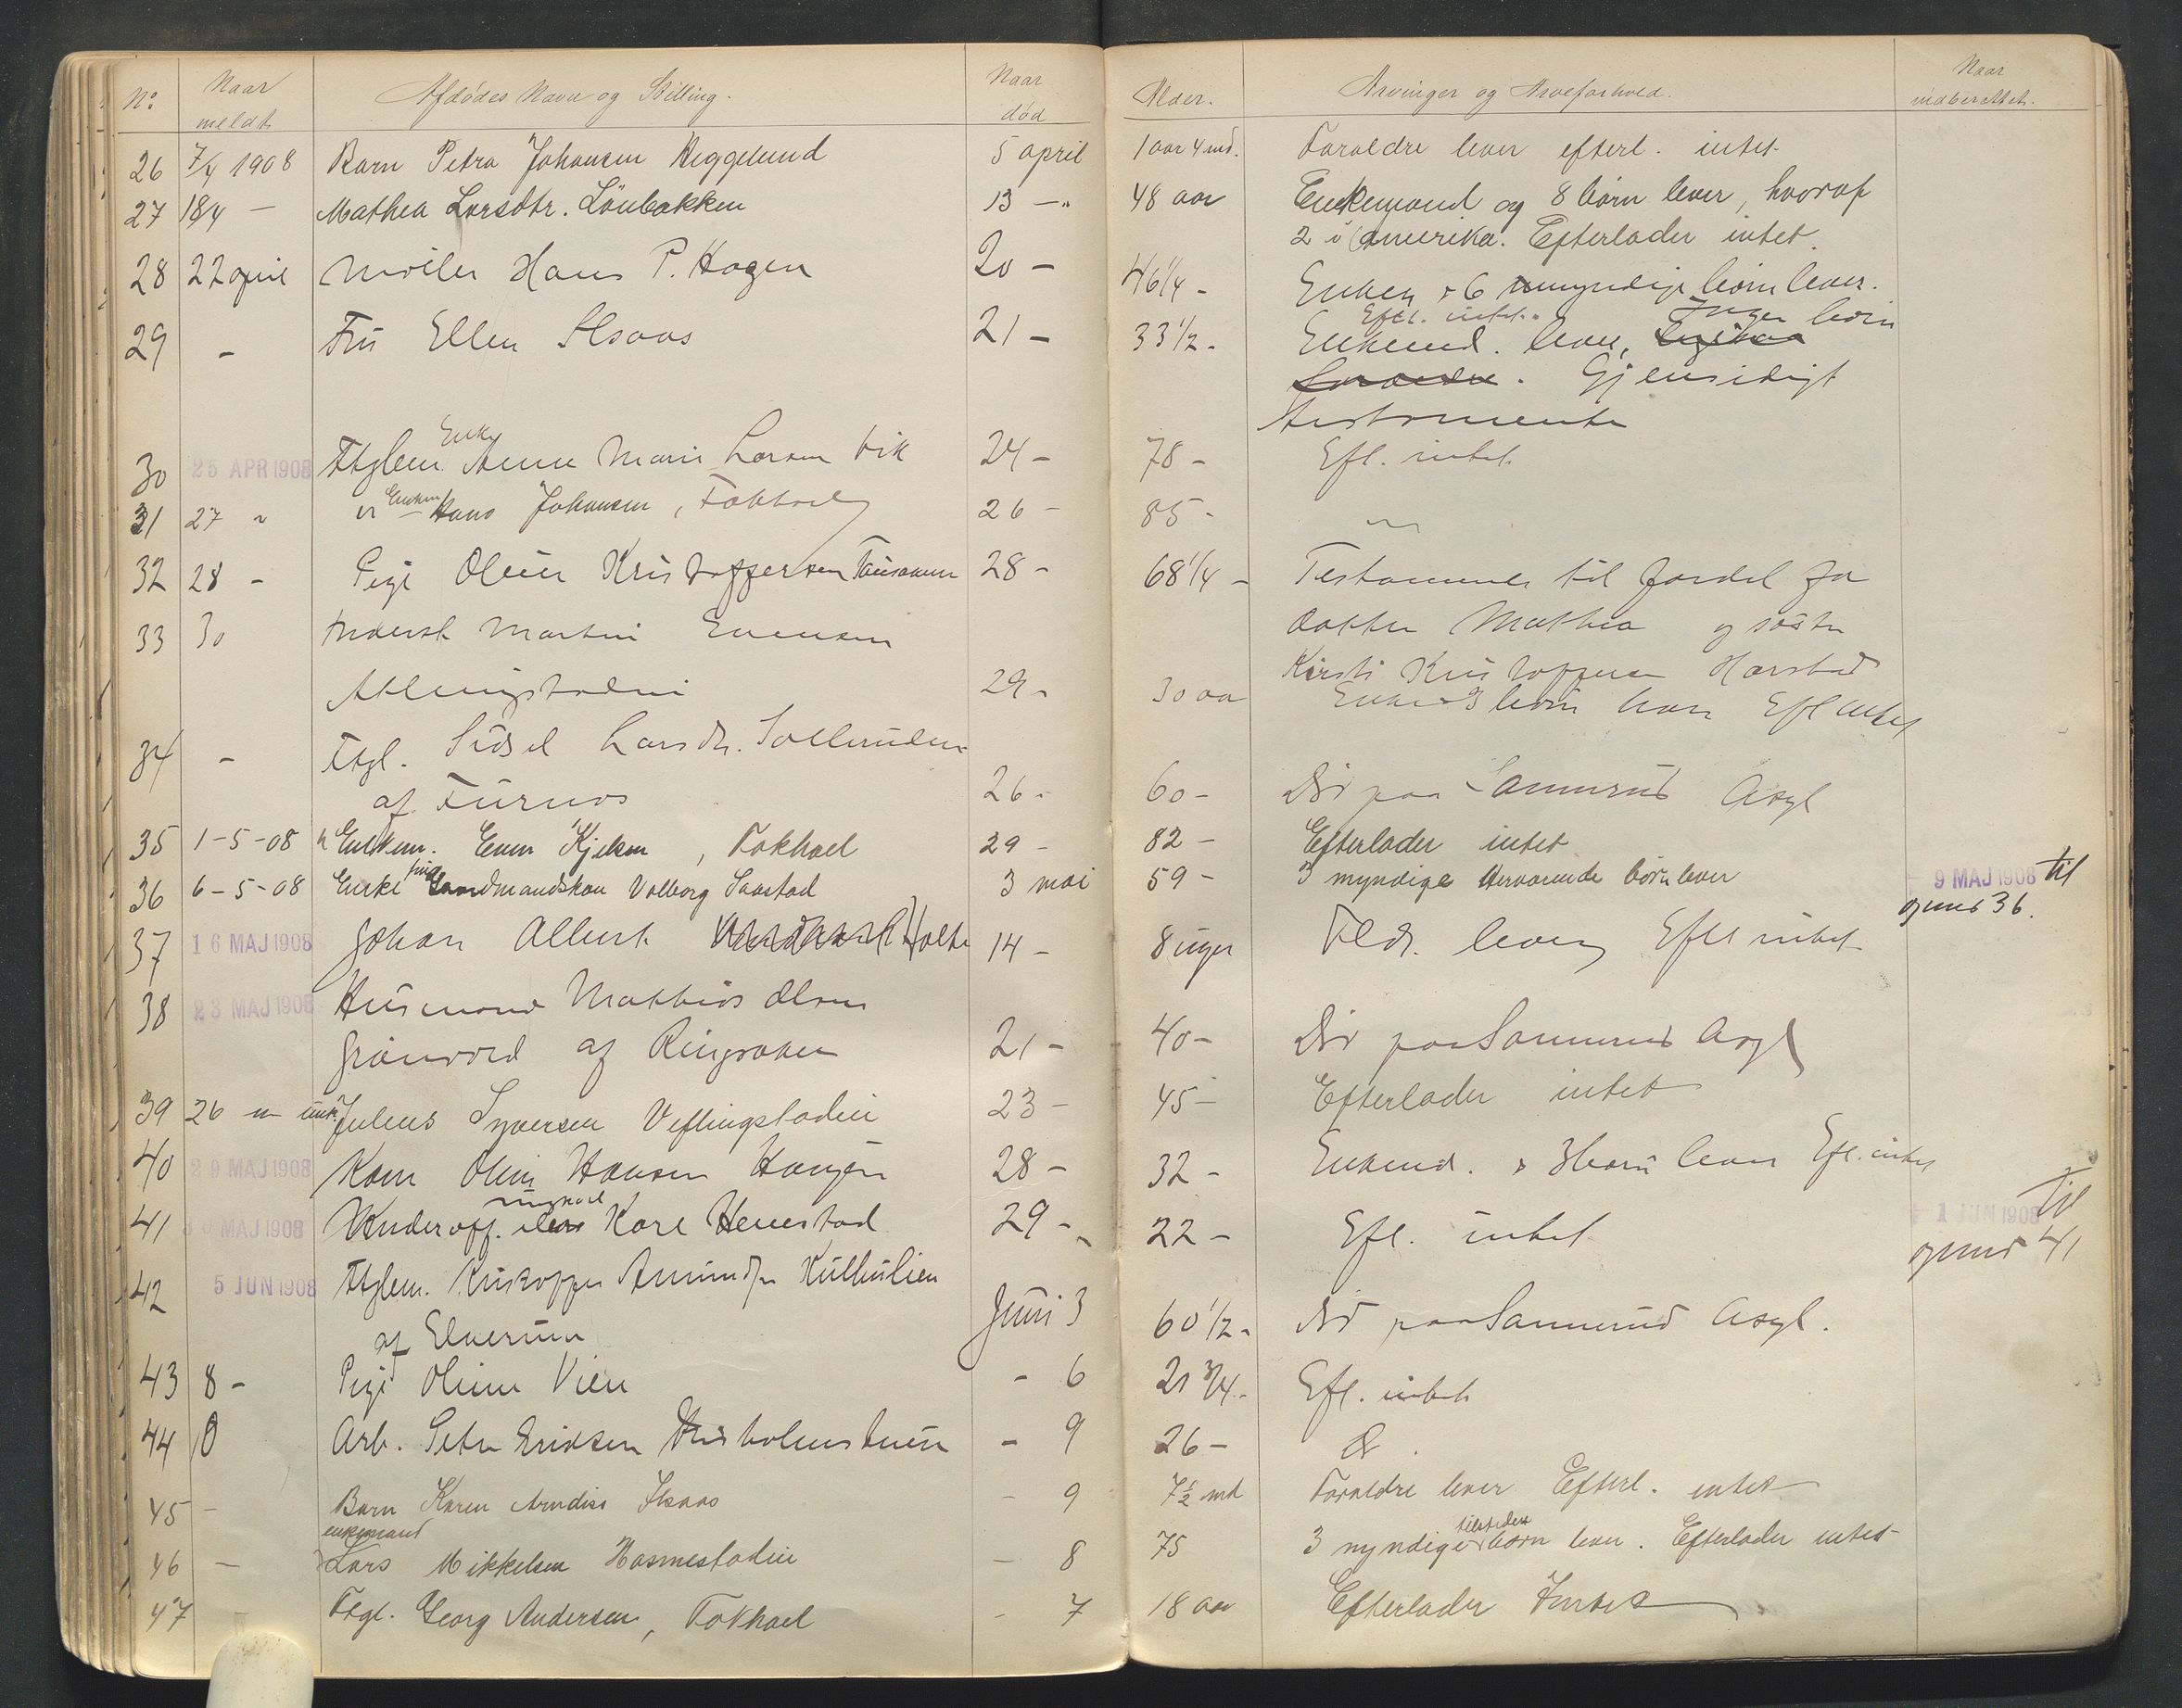 No Naar meldt Afdødes Navn og Stilling. Naar død Alder. Arvinger og Arveforhold. Naar indberettet.
26 7/4 1908 Barn Petra Johansen Heggelund 5 april 1 aar 4 md. Foraldre lever efterl. intet
27 18/4 — Mathea Larsdtr. Lönbakken 13 —" 48 aar Enkemand og 8 börn lever, hvoraf
2 i Amerika. Efterlader intet.
28 22 april Hans P. Hagen 20 — 46 1/4 - Enken + 6 umyndige börn lever.
Eftl. intet. Ingen börn
29 - Fru Ellen 21 — 33 1/2 - Enkemd. lever,
Gjensidigt
Testamente
Enke
30 25 APR 1908 Ftglem. Anne Marie Larsen Vik 24 - 78 - Efl. intet
31 27 " Enkem Hans Johansen, Fokhoel 26 - 85 - "
32 28 - Pige Oline Kristoffersen 28 - 68 1/4 - Testamente til fordel for
datter Mathea og söster
Kirsti Kristoffersen Harstad
33 30 Indersk Martin Evensen
29 - 30 aar Enke + 3 börn lever Efl intet
34 - Ftgl. Sidsel Larsdr.
af Furnes 26 - 60 - Död paa Sannerud Asyl
35 1-5-08 Enkem. Even Kjelsen, Fokhoel 29 - 82 - Efterlader intet
36 6-5-08 Enke Valborg Saastad 3 mai 59 - 3 myndige herværende börn lever 9 MAJ 1908 til
og med 36.
37 16 MAJ 1908 Johan Albert Holte 14 - 8 uger Fldr. lever Efl intet
38 23 MAJ 1908 Husmand Mathias Olsen
Grönvold af Ringsaker 21 - 40 - Död paa Sannerud Asyl
39 26 — " unk. Julius Syversen Veflingstadeie 23 - 45 - Efterlader intet
40 29 MAJ 1908 Kone Oline Hansen Haugen 28 - 32 - Enkemd. + 3 börn lever Efl. intet
ungkarl
41 30 MAJ 1908 Underoff. elev Karl Hemstad 29 - 22 - Efl. intet 1 JUN 1908 til
og med 41
42 5 JUN 1908 Ftglem. Kristoffer Amundsen
af Elverum Juni 3 60 1/2 - Död paa Sannerud Asyl.
43 8 - Pige Oline Vien - 6 21 3/4 - Efl. intet
44 10 Arb. Peter Eriksen - 9 26 -
45 - Barn Karen - 9 7 1/2 md Foraldre lever Efterl. intet
enkemand tilstedev.
46 — Lars Mikkelsen Hosmestadeie — 8 75 3 myndige börn lever. Efterlader intet
47 Ftgl. Georg Andersen, Fokhoel - 7 18 aar Efterlader Intet